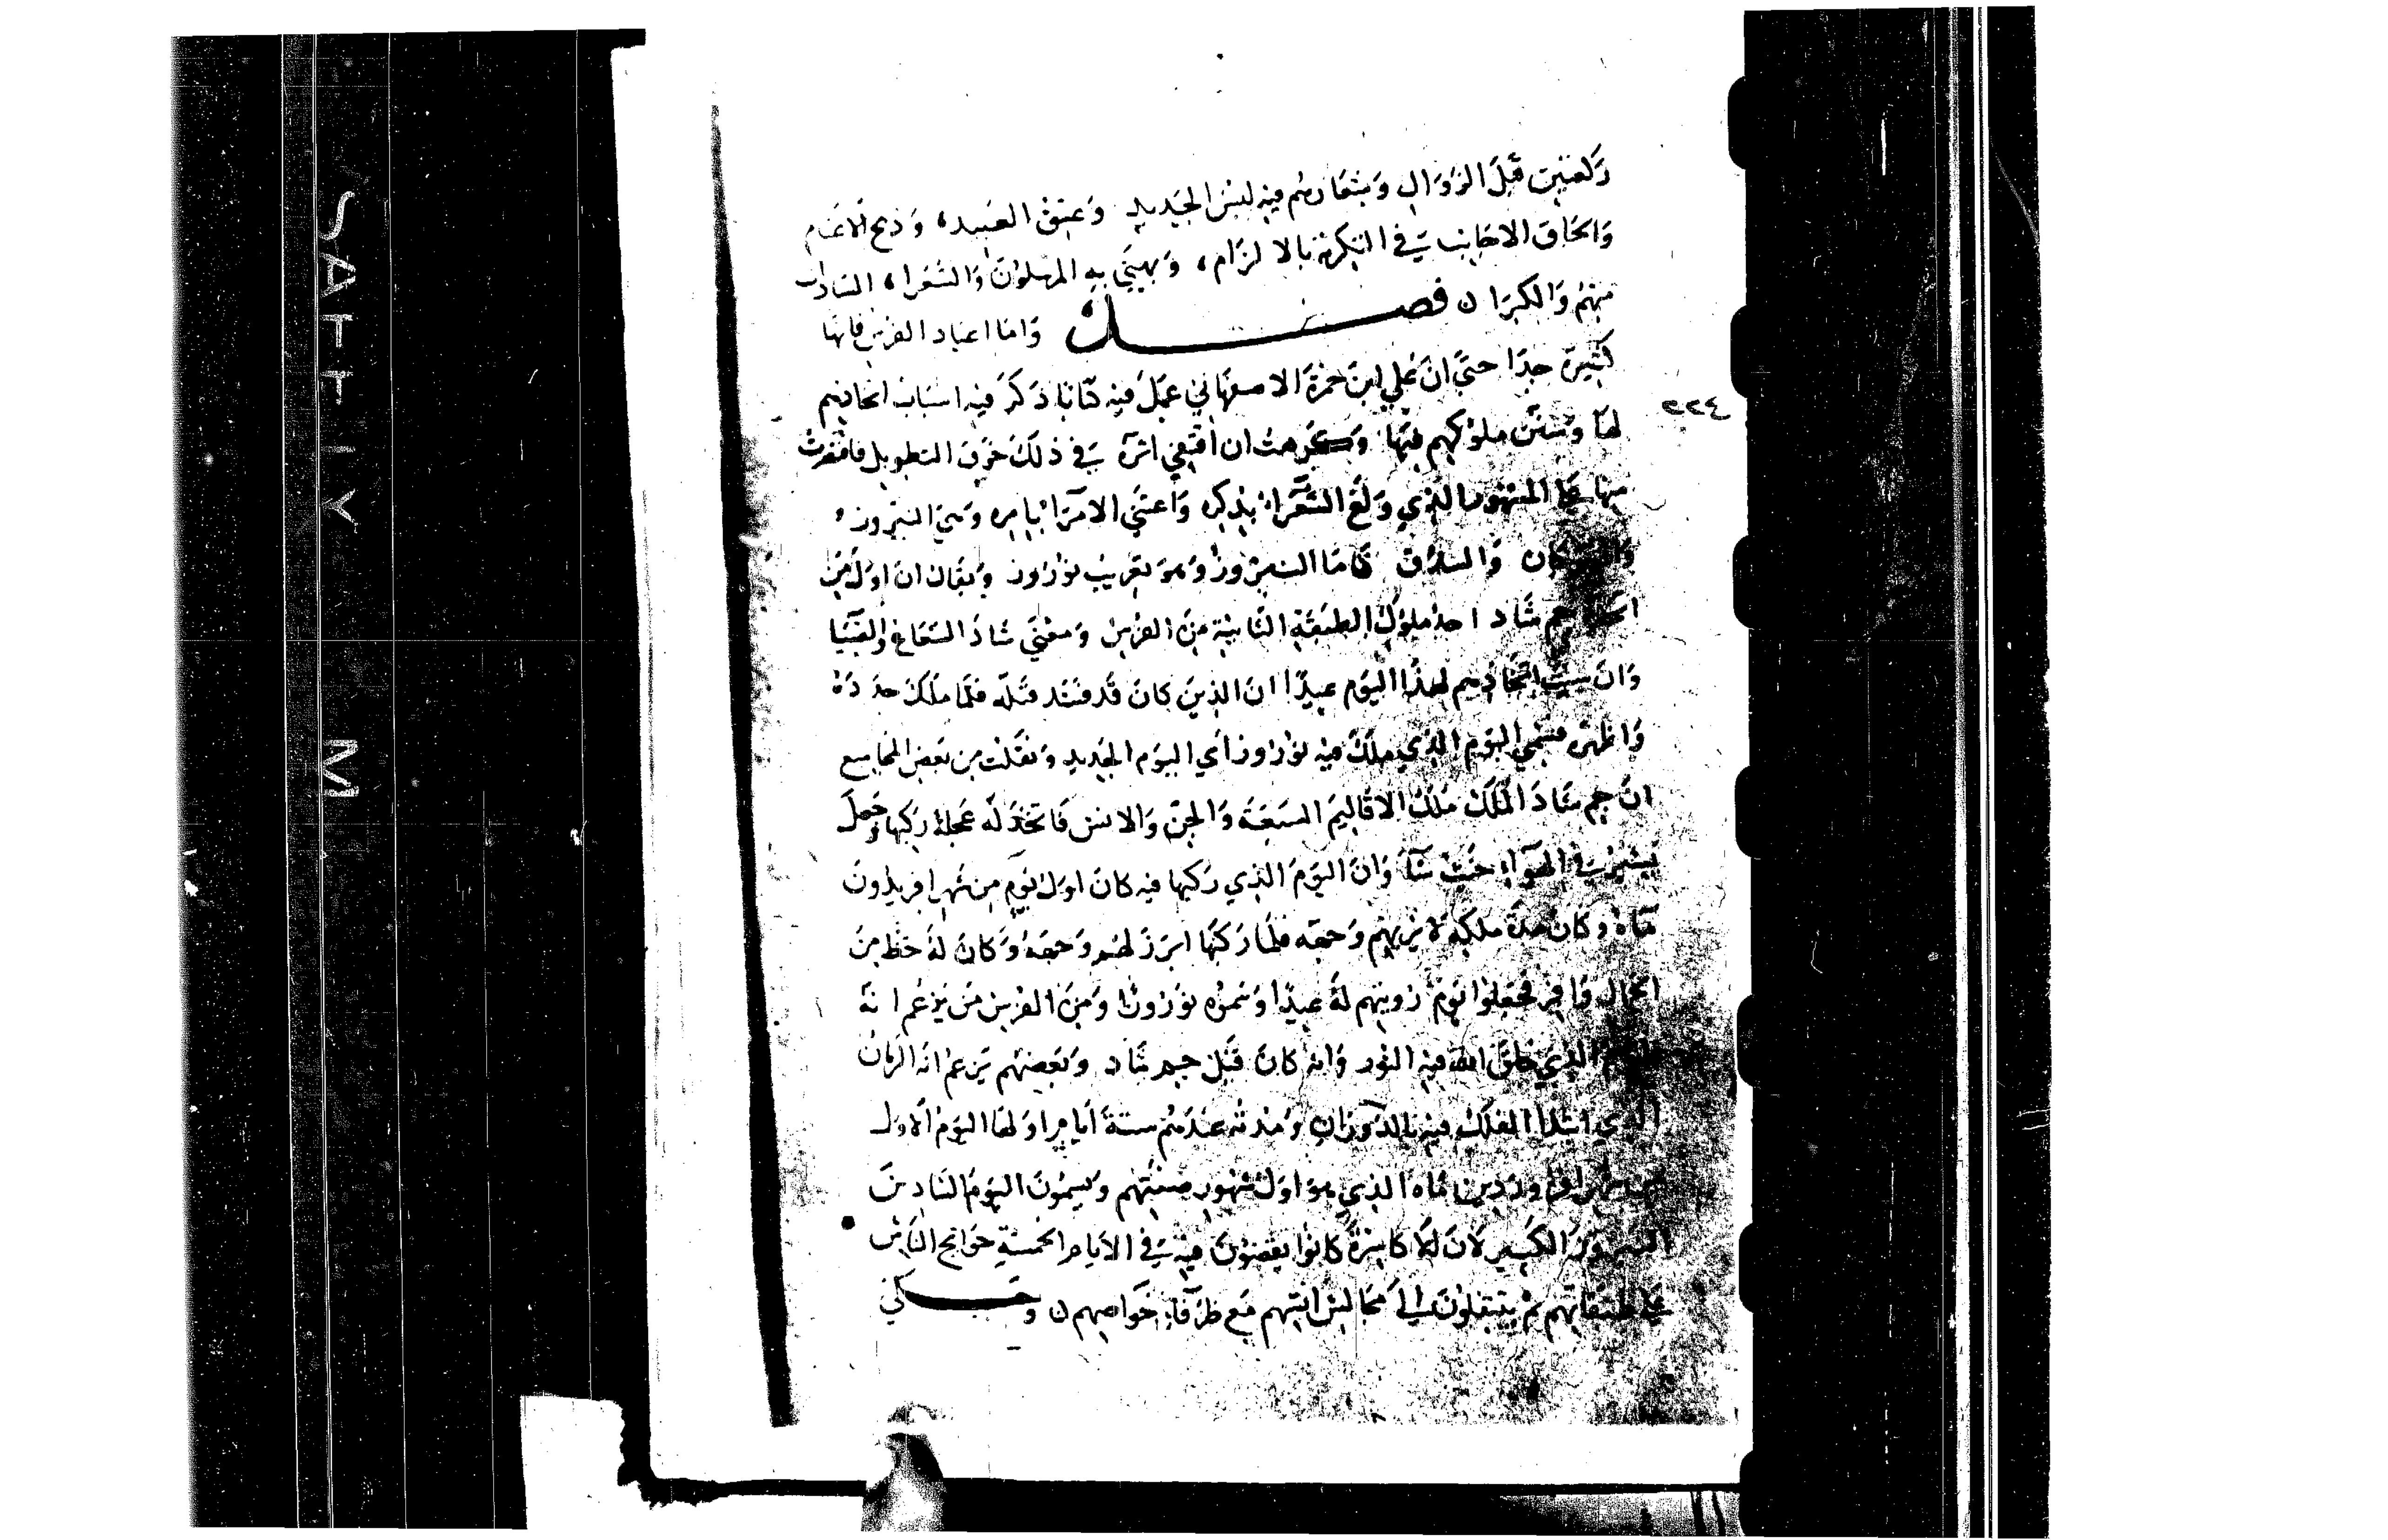 ركعتين قبل الزوال وشعارهم فيه لبس الجديد وعتق العبيد، وذبح الاغنام
والحاق الاجانب في التكرمة بالالزام، ويهني به المهلون والشعرا، السادات
منهم والكبرا ن فصل واما اعياد الفرس فانها
كثيرة جدا حتى ان علي ابن حمزة الاصفهاني عمل فيه كتابا ذكر فيه اسباب اتخاذهم
لها وسنن ملوكهم فيها وكرهت ان اقتفي اثره في ذلك خوف التطويل فاقتصرت
منها على المشهور الذي ولع الشعراء بذكره واعتنى الامراء بامره وهي النيروز،
والمهرجان والسذق فاما النيروز وهو تعريب نوروز ويقال ان اول من
اتخذه جم شاد احد ملوك الطبقة الثانية من الفرس ومعنى شاد الشعاع والضيا
وان سبب اتخاذهم لهذا اليوم عيدا ان الدين كان قد فسد قبله فلما ملك جدده
واظهره فسمي اليوم الذي ملك فيه نوروز اي اليوم الجديد ونقلت من بعض المجاميع
ان جم شاد الملك ملك الاقاليم السبعة والجن والانس فاتخذ له عجلة ركبها وجعل
يسير في الهواء حيث شاء وان اليوم الذي ركبها فيه كان اول يوم من شهر افريدون
ماه وكان مدة ملكه لا يريهم وجهه فلما ركبها ابرز لهم وجهه وكان له حظ من
الجمال وافر فجعلوا يوم رويتهم له عيدا وسموه نوروزا ومن الفرس من يزعم انه
اليوم الذي خلق الله فيه النور وانه كان قبل جم شاد وبعضهم يزعم انه الزمان
الذي ابتدا الفلك فيه بالدوران ومدته عندهم ستة ايام اولها اليوم الاول
من شهر افرودين ماه الذي هو اول شهور سنتهم ويسمون اليوم السادس
النيروز الكبير لان الاكاسرة كانوا يقضون فيه في الايام الخمسة حوايج الناس
على طبقاتهم ثم ينتقلون الى مجالس انسهم مع ظرفاء خواصهم ن وحكى
٢٢٤
SATTIY M